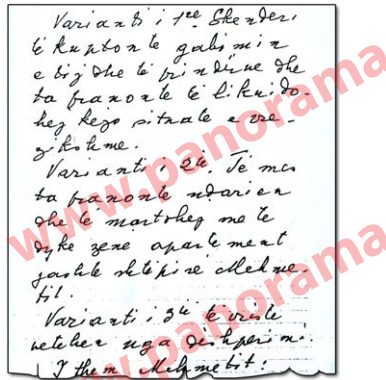 Varianti i 1re Skenderi
të kuptonte gabimin
e tij dhe të prindëve dhe
ta pranonte të likuido-
hej kjo situatë e rre-
zikshme.
Varianti i 2të. Të mos
ta pranonte ndarjen
dhe të martohej me të
dyke zënë apartament
jashtë shtëpisë Mehme-
tit.
Varianti i 3të të vriste
vetëhen nga dëshpërimi.
I them Mehmetit:
www.panorama
www.panorama
www.panorama